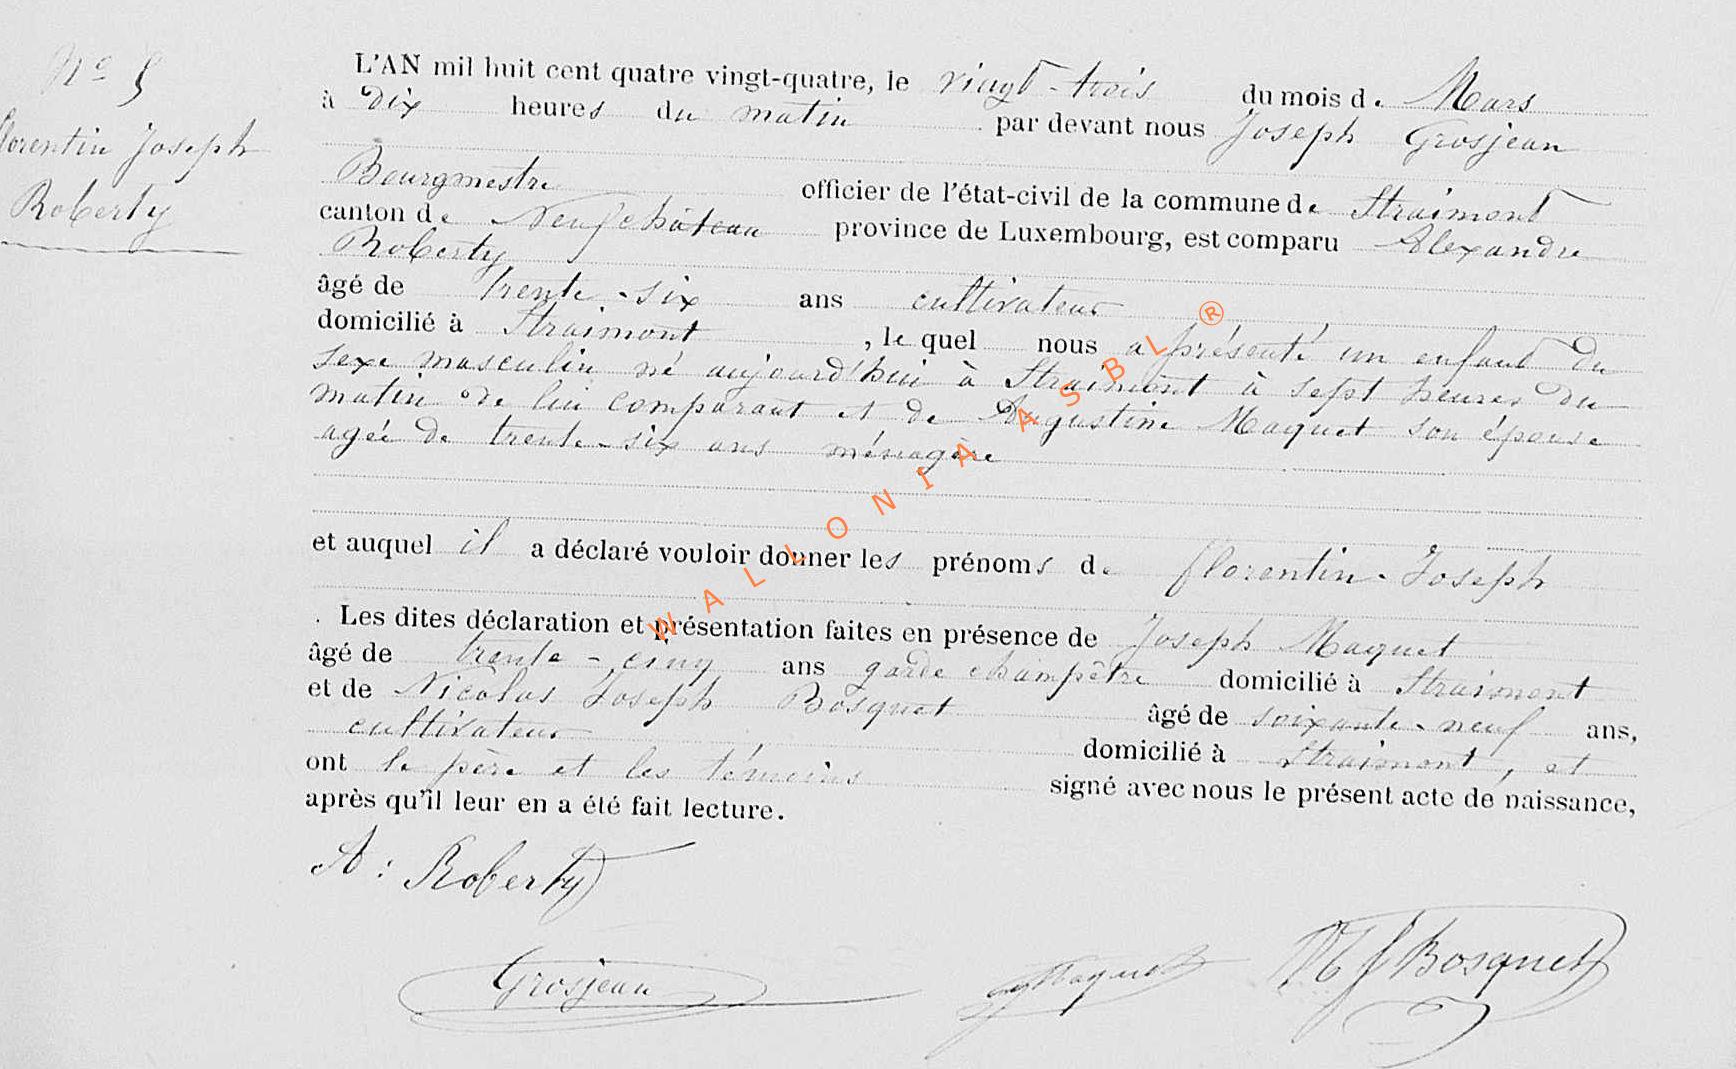 N° 5
Florentin Joseph
Roberty
L'AN mil huit cent quatre vingt-quatre, le vingt-trois du mois de Mars
à dix heures du matin par devant nous Joseph Grosjean
Bourgmestre officier de l'état-civil de la commune de Straimont
canton de Neufchâteau province de Luxembourg, est comparu Alexandre
Roberty
âgé de trente-six ans cultivateur
domicilié à Straimont, le quel nous a présenté un enfant du
sexe masculin né aujourd'hui à Straimont à sept heures du
matin de lui comparant et de Augustine Maquet son épouse
agée de trente-six ans ménagère
et auquel il a déclaré vouloir donner les prénoms de florentin-Joseph
Les dites déclaration et présentation faites en présence de Joseph Maquet
âgé de trente-cinq ans garde champêtre domicilié à Straimont
et de Nicolas Joseph Bosquet âgé de soixante-neuf ans,
cultivateur domicilié à Straimont, et
ont le père et les témoins signé avec nous le présent acte de naissance,
après qu'il leur en a été fait lecture.
A: Roberty
Grosjean
Maquet
Bosquet
WALLONIA ASBL®